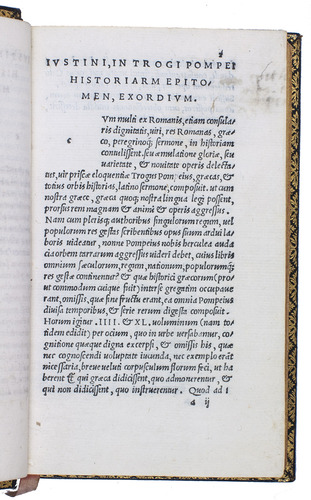 IVSTINI, IN TROGI POMPEI
HISTORIARM EPITO-
MEN, EXORDIVM.
c
Vm multi ex Romanis, etiam consula-
ris dignitatis, uiri, res Romanas, græ-
co, peregrinoq; sermone, in historiam
contulissent, seu æmulatione gloriæ, seu
uarietate, & nouitate operis delecta-
tus, uir priscæ eloquentiæ Trogus Pompeius, græcas, &
totius orbis historias, latino sermone, composuit. ut cum
nostra græce, græca quoq; nostra lingua legi possent,
prorsus rem magnam & animi & operis aggressus.
Nam cum plerisq; authoribus singulorum regum, uel
populorum res gestas scribentibus opus suum ardui la-
boris uideatur, nonne Pompeius nobis herculea auda-
cia orbem terrarum aggressus uideri debet, cuius libris
omnium sæculorum, regum, nationum, populorumq;
res gestæ continentur? & quæ historici græcorum (pro-
ut commodum cuique fuit) interse gregatim occupaue
rant, omissis, quæ sine fructu erant, ea omnia Pompeius
diuisa temporibus, & serie rerum digesta composuit.
Horum igitur . IIII. & XL. uoluminum (nam tot
tidem edidit) per ocium, quo in urbe uersabamur, co-
gnitione quæque digna excerpsi, & omissis his, quæ
nec cognoscendi uoluptate iucunda, nec exemplo erāt
necessaria, breue ueluti corpusculum florum feci, ut ha
berent & qui græca didicissent, quo admonerentur, &
qui non didicissent, quo instruerentur. Quod ad
a ij